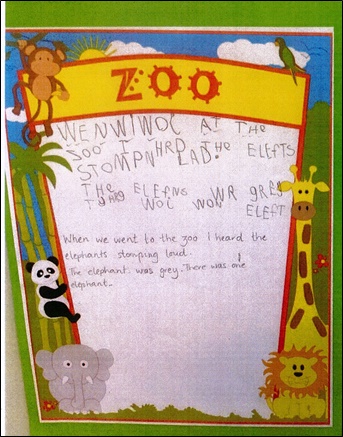 ZOO
WENWIWOC AT THE
ZOO I HRD THE ELEFTS
STOMPN LAD.
THE ELEFNS WR GREY
WOC WON ELEFT
When we went to the zoo I heard the
elephants stomping loud.
The elephant was grey. There was one
elephant.